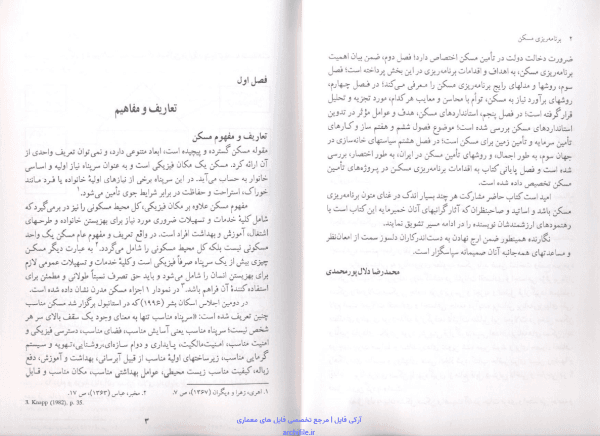 ۲ برنامه‌ریزی مسکن
ضرورت دخالت دولت در تأمین مسکن اختصاص دارد؛ فصل دوم، ضمن بیان اهمیت
برنامه‌ریزی مسکن، به اهداف و اقدامات برنامه‌ریزی در این بخش پرداخته است؛ فصل
سوم، روشها و مدلهای رایج برنامه‌ریزی مسکن را معرفی می‌کند؛ در فصل چهارم،
روشهای برآورد نیاز به مسکن، توأم با محاسن و معایب هر کدام، مورد تجزیه و تحلیل
قرار گرفته است؛ در فصل پنجم، استانداردهای مسکن، هدف و عوامل مؤثر در تدوین
استانداردهای مسکن بررسی شده است؛ موضوع فصول ششم و هفتم ساز و کارهای
تأمین سرمایه و تأمین زمین برای مسکن است؛ در فصل هشتم سیاستهای خانه‌سازی در
جهان سوم، به طور اجمال، و روشهای تأمین مسکن در ایران، به طور اختصار، بررسی
شده است و فصل پایانی کتاب به اقدامات برنامه‌ریزی مسکن در پروژه‌های تأمین
مسکن تخصیص داده شده است.
امید است کتاب حاضر مشارکت هر چند بسیار اندک در غنای متون برنامه‌ریزی
مسکن باشد و اساتید و صاحبنظران که آثار گرانبهای آنان خمیرمایه این کتاب است با
رهنمودهای ارزشمندشان نویسنده را در ادامه مسیر تشویق نمایند.
نگارنده همینطور ضمن ارج نهادن به دست‌اندرکاران دلسوز سمت از امعان‌نظر
و مساعدتهای همه‌جانبه آنان صمیمانه سپاسگزار است.
محمدرضا دلال‌پور محمدی
فصل اول
تعاریف و مفاهیم
تعاریف و مفهوم مسکن
مقوله مسکن گسترده و پیچیده است، ابعاد متنوعی دارد، و نمی‌توان تعریف واحدی از
آن ارائه کرد. مسکن یک مکان فیزیکی است و به عنوان سرپناه نیاز اولیه و اساسی
خانوار به حساب می‌آید. در این سرپناه برخی از نیازهای اولیهٔ خانواده یا فرد مانند
خوراک، استراحت و حفاظت در برابر شرایط جوی تأمین می‌شود.۱
مفهوم مسکن علاوه بر مکان فیزیکی، کل محیط مسکونی را نیز در برمی‌گیرد که
شامل کلیهٔ خدمات و تسهیلات ضروری مورد نیاز برای بهزیستن خانواده و طرحهای
اشتغال، آموزش و بهداشت افراد است. در واقع تعریف و مفهوم عام مسکن یک واحد
مسکونی نیست بلکه کل محیط مسکونی را شامل می‌گردد.۲ به عبارت دیگر مسکن
چیزی بیش از یک سرپناه صرفاً فیزیکی است و کلیهٔ خدمات و تسهیلات عمومی لازم
برای بهزیستن انسان را شامل می‌شود و باید حق تصرف نسبتاً طولانی و مطمئن برای
استفاده‌کنندهٔ آن فراهم باشد.۳ در نمودار ۱ اجزاء مسکن مدرن نشان داده شده است.
در دومین اجلاس اسکان بشر (۱۹۹۶) که در استانبول برگزار شد مسکن مناسب
چنین تعریف شده است: «سرپناه مناسب تنها به معنای وجود یک سقف بالای سر هر
شخص نیست؛ سرپناه مناسب یعنی آسایش مناسب، فضای مناسب، دسترسی فیزیکی و
امنیت مناسب، امنیت مالکیت، پایداری و دوام سازه‌ای، روشنایی، تهویه و سیستم
گرمایی مناسب، زیرساختهای اولیهٔ مناسب از قبیل آبرسانی، بهداشت و آموزش، دفع
زباله، کیفیت مناسب زیست محیطی، عوامل بهداشتی مناسب، مکان مناسب و قابل
۱. اهری، زهرا و دیگران (۱۳۶۷)، ص ۷. ۲. مخبر، عباس (۱۳۶۳)، ص ۱۷.
3. Knapp (1982), p. 35.
۳
آرکی فایل | مرجع تخصصی فایل های معماری
archifile.ir